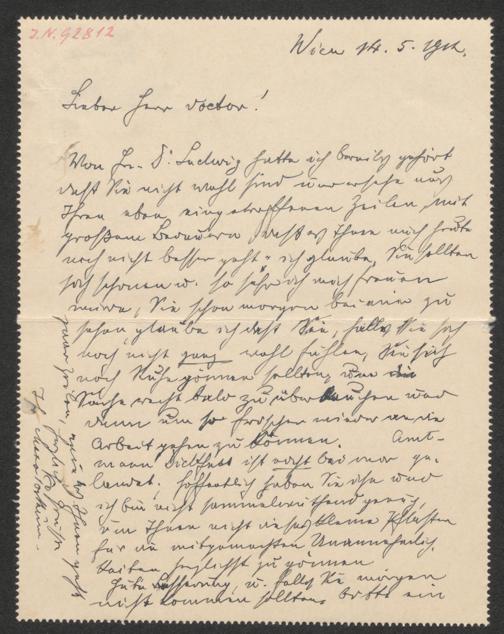 I.N. 92812
Wien 14. 5. 1912.
Lieber Herr Doctor!
Von Dr. Ludwig hatte ich bereits gehört
daß Sie nicht wohl sind und ersehe aus
Ihren eben eingetroffenen Zeilen, mit
großem Bedauern, daß es Ihnen auch heute
noch nicht besser geht – ich glaube, Sie sollten
sich schonen u. so sehr ich mich freuen
würde, Sie schon morgen bei mir zu
sehen glaube ich daß Sie, falls Sie sich
noch nicht ganz wohl fühlen, Sie sich
noch Ruhe gönnen sollten, um die
Sache recht bald zu über tauchen und
dann um so frischer wieder an die
Arbeit gehen zu können. Amt-
mann ist nicht bei mir ge-
landet. Hoffentlich haben Sie ihn und
ich bin nicht sammelwüthend genug,
um Ihnen nicht dieses kleine Pflaster
für die mitgemachten Unannehmlich-
keiten herzlichst zu gönnen
Gute Besserung, u. falls Sie morgen
nicht kommen sollten, bitte ein
paar Zeilen, wie es Ihnen geht
Herzliche Grüße
Ihr